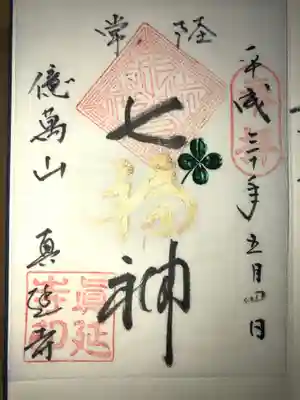 平成三十年五月四日
奉拝
常陸
七福神
億萬山 真延寺
眞延寺印